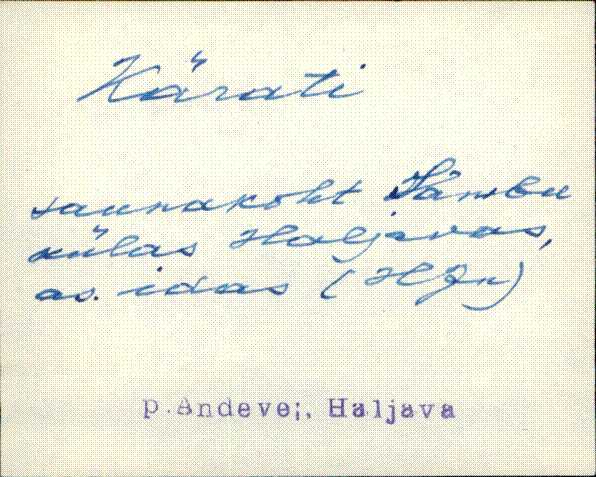 Kärati
saunakoht Sambu
külas Haljavas,
as. idas (HJn)
P. Andevei, Haljava